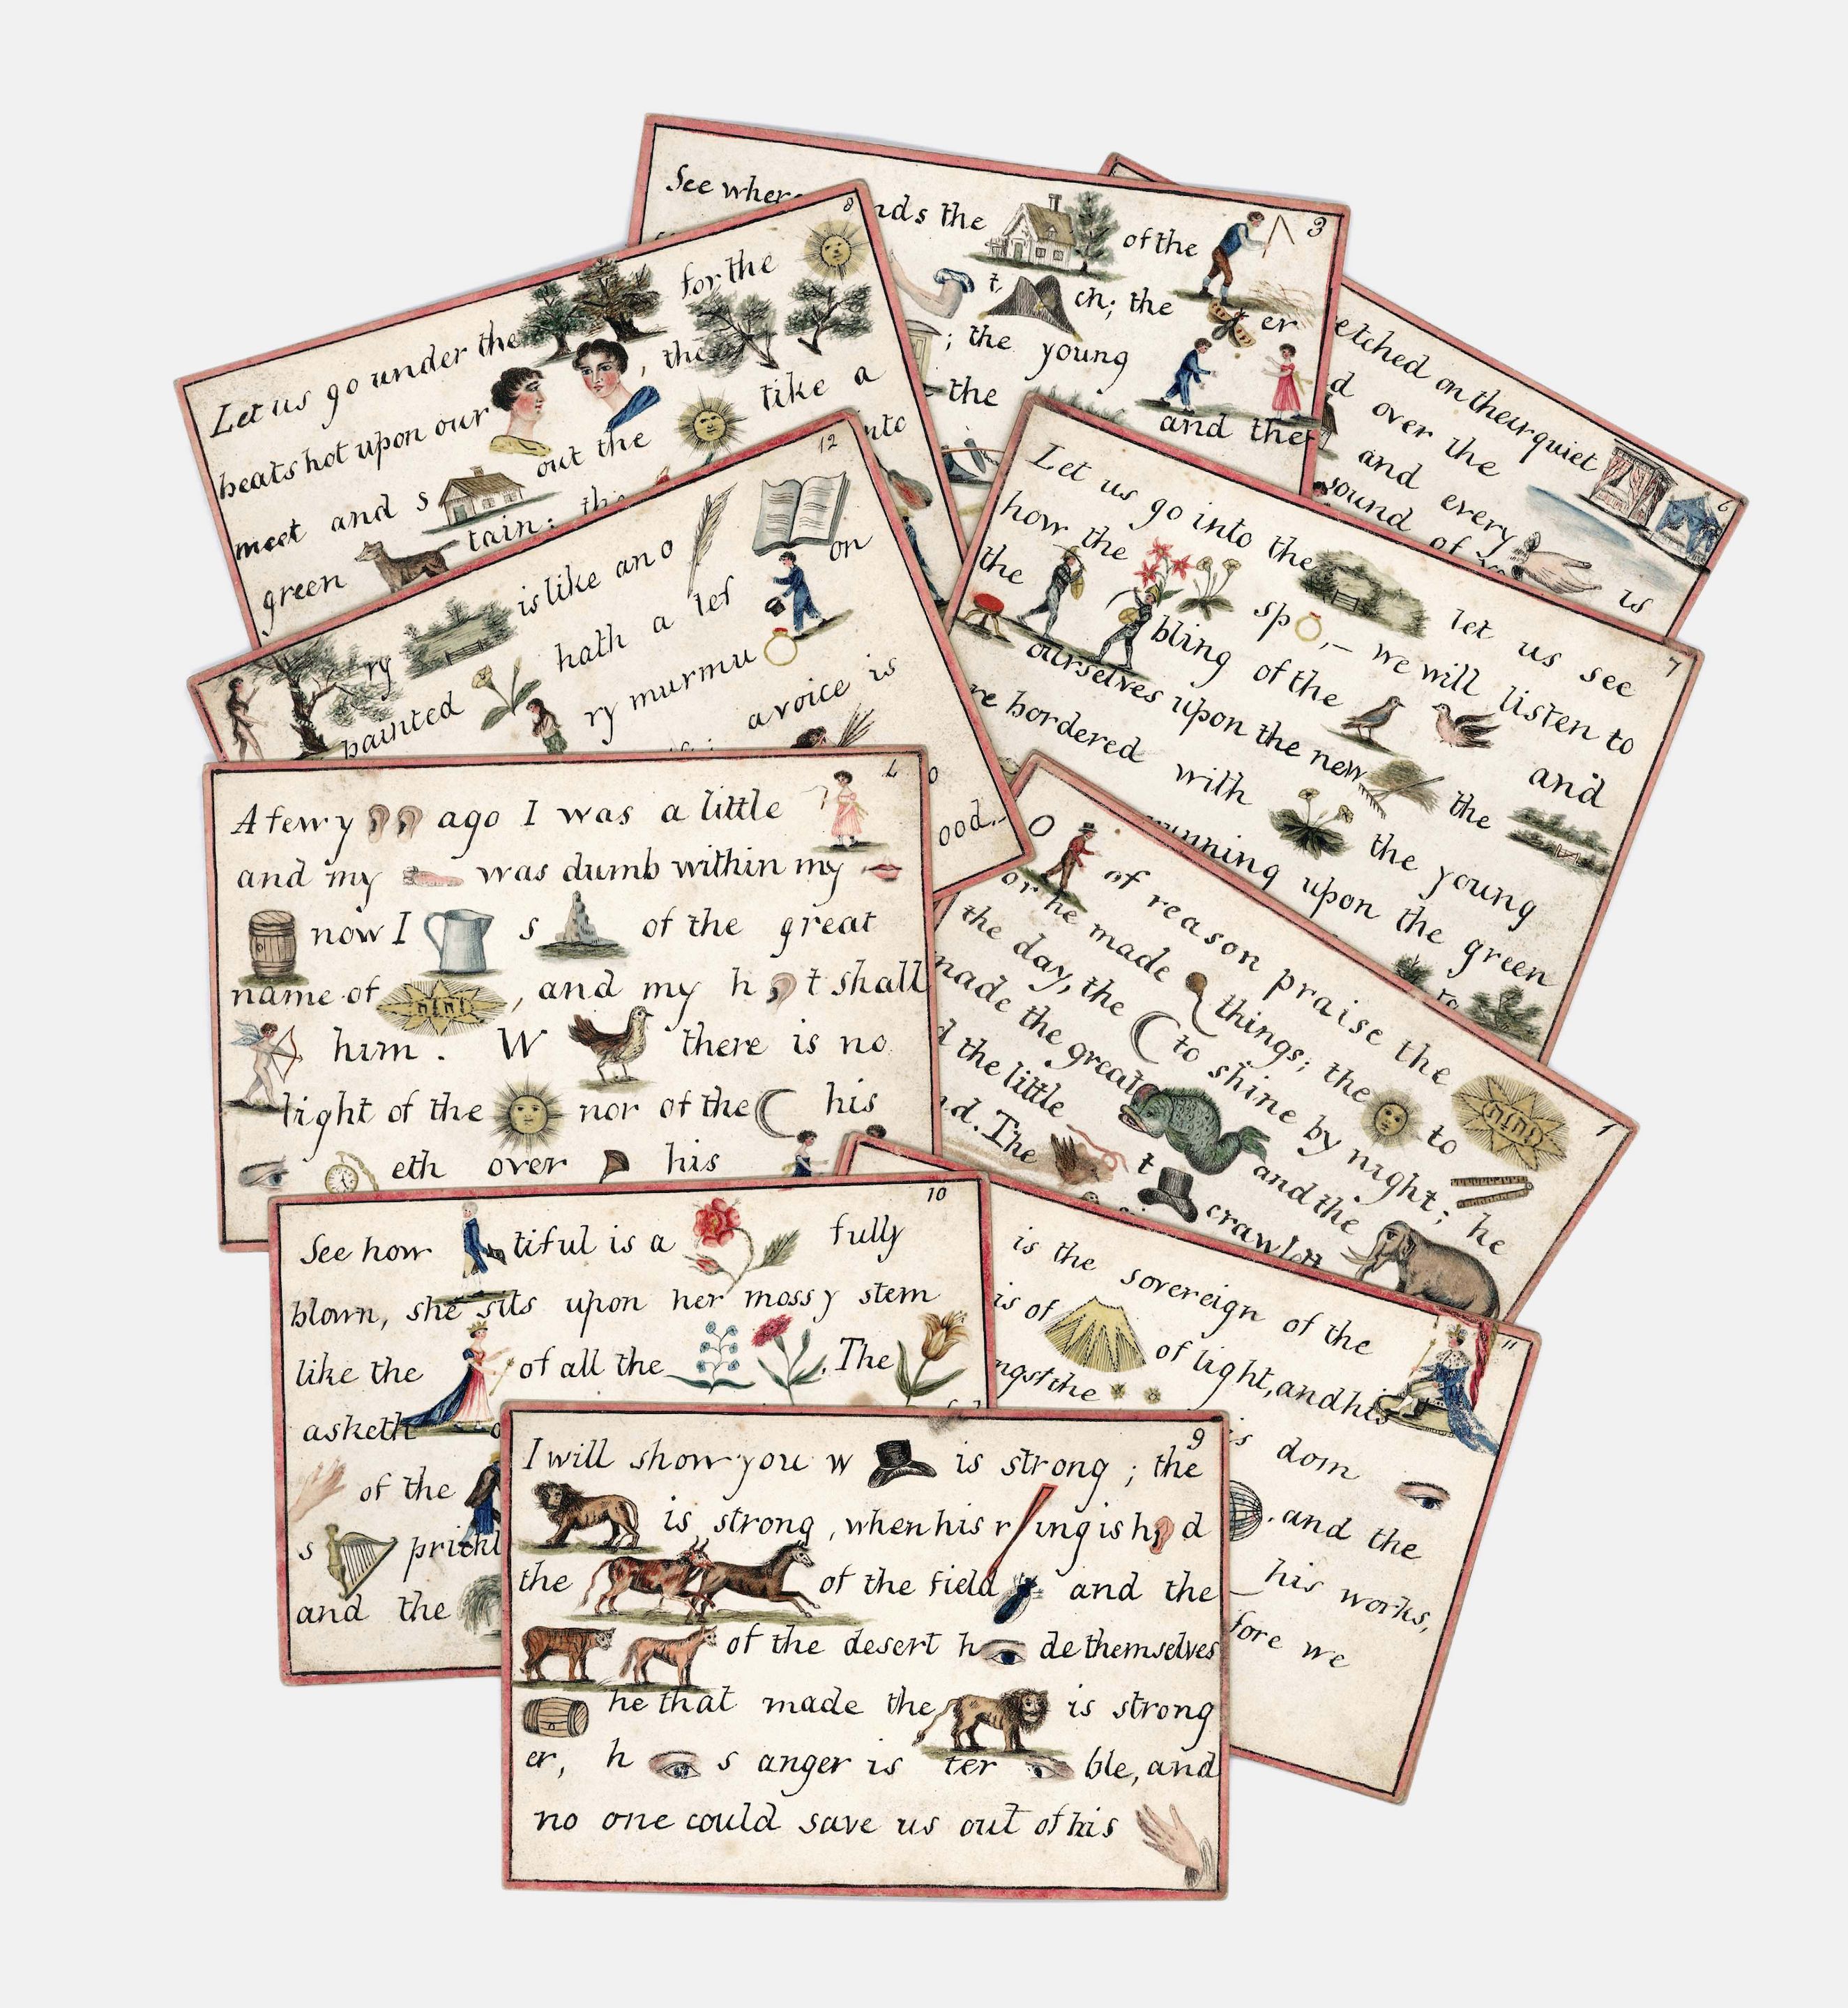 3
See where nds the of the
t ch; the er
; the young
the
and the
etched on their quiet
6
d over the
and every
sound of is
8
Let us go under the for the
beats hot upon our , the
meet and s out the like a
green tain: the
into
12
ry is like an o
painted hath a les on
ry murmu
a voice is
ood.
7
Let us go into the let us see
how the sp ,- we will listen to
the bling of the and
ourselves upon the new the
re bordered with the young
running upon the green
to
A few y ago I was a little
and my was dumb within my
now I s of the great
name of יהוה, and my h t shall
him. W there is no
light of the nor of the his
eth over his
1
O of reason praise the יהוה
for he made things; the to
the day, the to shine by night; he
made the great and the
d the little t crawl
nd. The
10
See how tiful is a fully
blown, she sits upon her mossy stem
like the of all the . The
asketh
of the
s prickl
and the
11
is the sovereign of the
is of of light, and his
ngst the
is dom
. and the
his works,
fore we
9
I will show you w is strong; the
is strong, when his r ing is h d
the of the field and the
of the desert h de themselves
he that made the is strong
er, h s anger is ter ble, and
no one could save us out of his